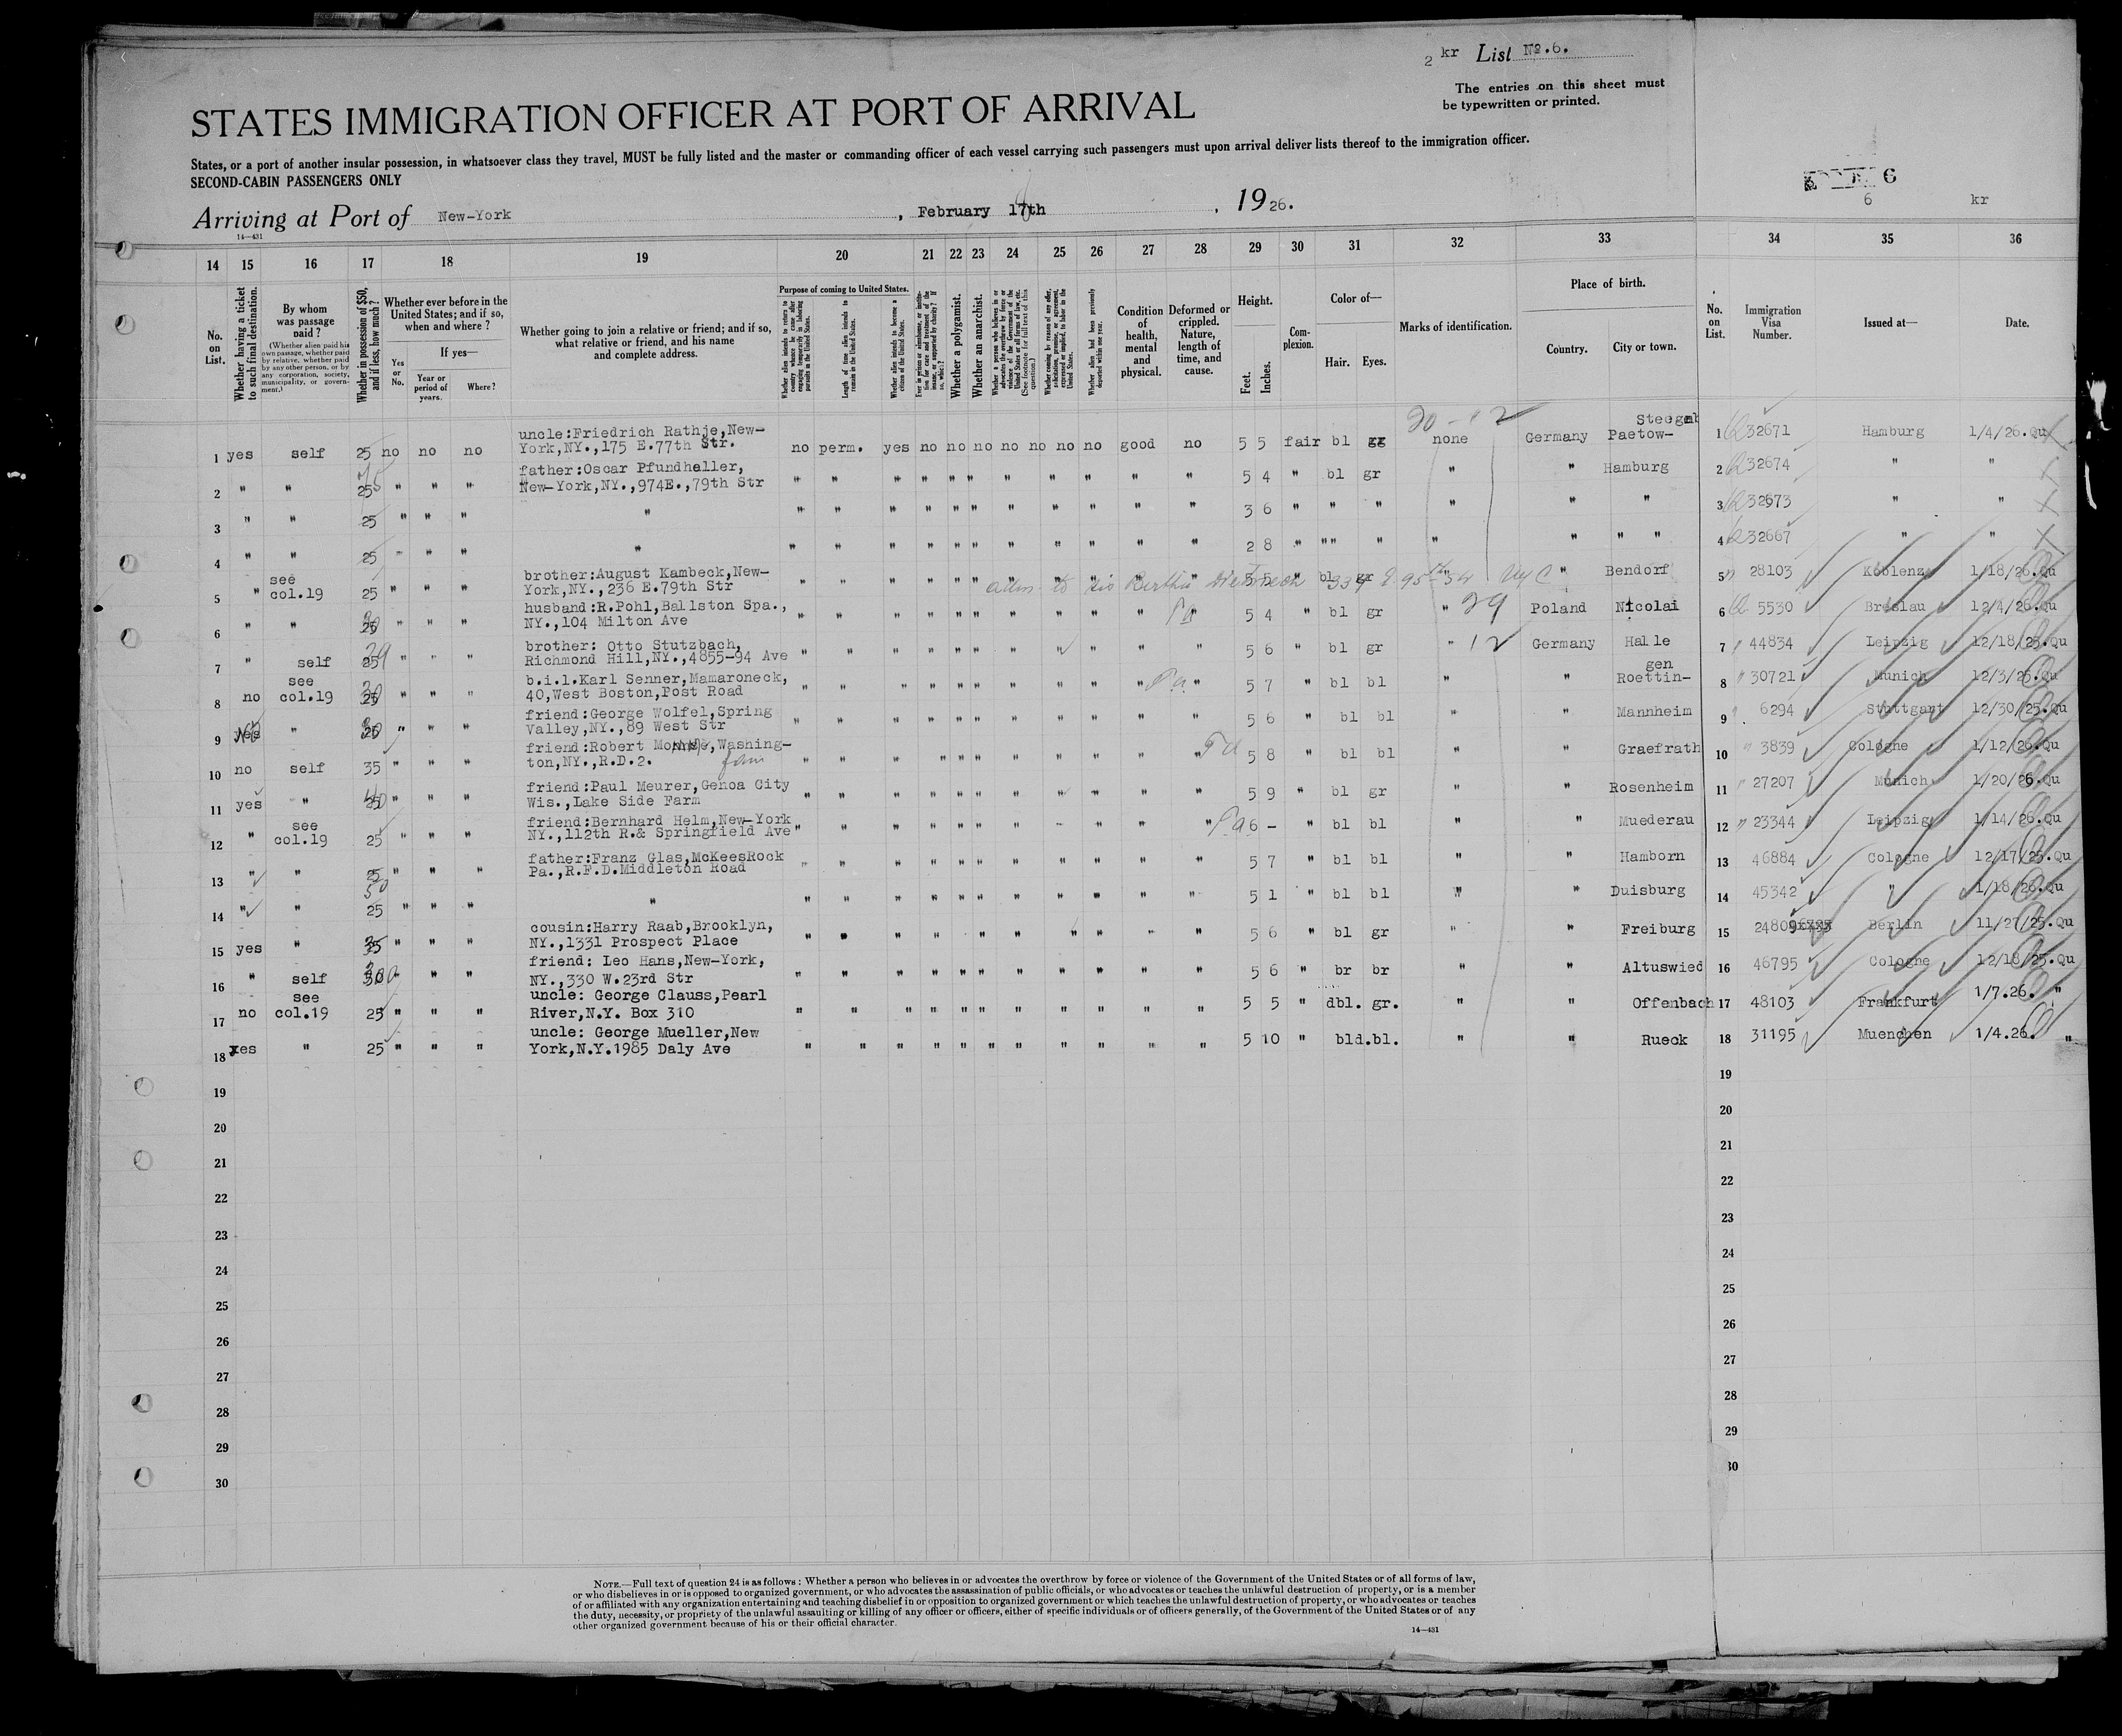 2 kr List No.6.
The entries on this sheet must
be typewritten or printed.
STATES IMMIGRATION OFFICER AT PORT OF ARRIVAL
States, or a port of another insular possession, in whatsoever class they travel, MUST be fully listed and the master or commanding officer of each vessel carrying such passengers must upon arrival deliver lists thereof to the immigration officer.
SECOND-CABIN PASSENGERS ONLY
6
6 kr
Arriving at Port of New-York, February 17th, 1926.
14—431
14 15 16 17 18 19 20 21 22 23 24 25 26 27 28 29 30 31 32 33 34 35 36
No. on List.
Whether having a ticket to such final destination.
By whom was passage paid?
(Whether alien paid his own passage, whether paid by relative, whether paid by any other person, or by any corporation, society, municipality, or government.)
Whether in possession of $50, and if less, how much?
Whether ever before in the United States; and if so, when and where?
Yes or No.
If yes—
Year or period of years.
Where?
Whether going to join a relative or friend; and if so, what relative or friend, and his name and complete address.
Purpose of coming to United States.
Whether alien intends to return to country whence he came after engaging temporarily in laboring pursuits in the United States.
Length of time alien intends to remain in the United States.
Whether alien intends to become a citizen of the United States.
Ever in prison or almshouse, or institution for care and treatment of the insane, or supported by charity? If so, which?
Whether a polygamist.
Whether an anarchist.
Whether a person who believes in or advocates the overthrow by force or violence of the Government of the United States or all forms of law, etc. (See footnote for full text of this question.)
Whether coming by reason of any offer, solicitation, promise, or agreement, expressed or implied, to labor in the United States.
Whether alien had been previously deported within one year.
Condition of health, mental and physical.
Deformed or crippled. Nature, length of time, and cause.
Height.
Feet.
Inches.
Complexion.
Color of—
Hair.
Eyes.
Marks of identification.
Place of birth.
Country.
City or town.
No. on List.
Immigration Visa Number.
Issued at—
Date.
20-12
1 yes self 25 no no no uncle:Friedrich Rathje,New-York,NY.,175 E.77th Str. no perm. yes no no no no no no no good no 5 5 fair bl gr none Germany Paetow- 1 32671 Hamburg 1/4/26.Qu
2 " " 25 " " " father:Oscar Pfundheller, New-York,NY.,974E.,79th Str " " " " " " " " " " " 5 4 " bl gr " " Hamburg 2 32674 " "
3 " " 25 " " " " " " " " " " " " " " " 3 6 " " " " " " 3 32673 " "
4 " " 25 " " " " " " " " " " " " " " " 2 8 " " " " " " " 4 32667 " "
5 " see col.19 25 " " " brother:August Kambeck,New-York,NY.,236 E.79th Str " " " " " " " " " " " 5 5 " bl gr " Bendorf 5 28103 Koblenz 1/18/26.Qu
6 " " 25 " " " husband:R.Pohl,Ballston Spa., NY.,104 Milton Ave " " " " " " " " " " 5 4 " bl gr " 29 Poland Nicolai 6 5530 Breslau 12/4/26.Qu
7 " self 25 " " " brother: Otto Stutzbach, Richmond Hill,NY.,4855-94 Ave " " " " " " " " " " 5 6 " bl gr " 12 Germany Halle 7 44834 Leipzig 12/18/25.Qu
8 no see col.19 25 " " " b.i.l.Karl Senner,Mamaroneck, 40,West Boston,Post Road " " " " " " " " " " " 5 7 " bl bl " " Roettin-gen 8 30721 Munich 12/3/25.Qu
9 yes " " " " friend:George Wolfel,Spring Valley,NY.,89 West Str " " " " " " " " " " " 5 6 " bl bl " " Mannheim 9 6294 Stuttgart 12/30/25.Qu
10 no self 35 " " " friend:Robert , Washington,NY.,R.D.2. " " " " " " " " " " " 5 8 " bl bl " " Graefrath 10 3839 Cologne 1/12/26.Qu
11 yes " " " " friend:Paul Meurer,Genoa City Wis.,Lake Side Farm " " " " " " " " " " " 5 9 " bl gr " " Rosenheim 11 27207 Munich 1/20/26.Qu
12 " see col.19 25 " " " friend:Bernhard Helm,New-York NY.,112th R.& Springfield Ave " " " " " " " " " " " 6 - " bl bl " " Muederau 12 23344 Leipzig 1/14/26.Qu
13 " " 25 " " " father:Franz Glas,McKeesRock Pa.,R.F.D.Middleton Road " " " " " " " " " " " 5 7 " bl bl " " Hamborn 13 46884 Cologne 12/17/25.Qu
14 " " 25 " " " " " " " " " " " " " " " 5 1 " bl bl " " Duisburg 14 45342 " 1/18/26.Qu
15 yes " 35 " " " cousin:Harry Raab,Brooklyn, NY.,1331 Prospect Place " " " " " " " " " " 5 6 " bl gr " " Freiburg 15 24809 Berlin 11/27/25.Qu
16 " self " " " friend: Leo Hans,New-York, NY.,330 W.23rd Str " " " " " " " " " " " 5 6 " br br " " Altuswied 16 46795 Cologne 12/18/25.Qu
17 no see col.19 25 " " " uncle: George Clauss,Pearl River,N.Y. Box 310 " " " " " " " " " " " 5 5 " dbl. gr. " " Offenbach 17 48103 Frankfurt 1/7.26. "
18 yes " 25 " " " uncle: George Mueller,New York,N.Y.1985 Daly Ave " " " " " " " " " " " 5 10 " bld.bl. " " Rueck 18 31195 Muenchen 1/4.26. "
19 19
20 20
21 21
22 22
23 23
24 24
25 25
26 26
27 27
28 28
29 29
30 30
NOTE.—Full text of question 24 is as follows: Whether a person who believes in or advocates the overthrow by force or violence of the Government of the United States or of all forms of law,
or who disbelieves in or is opposed to organized government, or who advocates the assassination of public officials, or who advocates or teaches the unlawful destruction of property, or is a member
of or affiliated with any organization entertaining and teaching disbelief in or opposition to organized government or which teaches the unlawful destruction of property, or who advocates or teaches
the duty, necessity, or propriety of the unlawful assaulting or killing of any officer or officers, either of specific individuals or of officers generally, of the Government of the United States or of any
other organized government because of his or their official character.
14—431